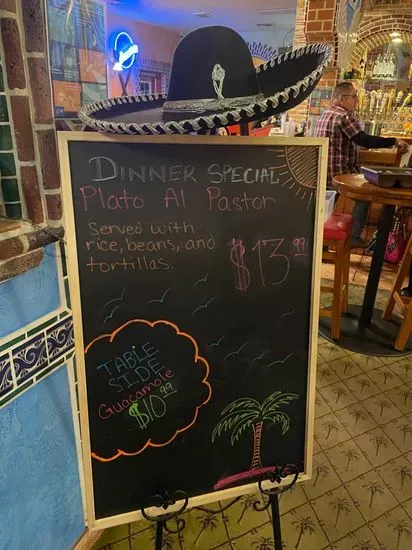 DINNER SPECIAL
Plato Al Pastor
Served with
rice, beans, and
tortillas.
$13.99
TABLE
SIDE
Guacamole
$10.99